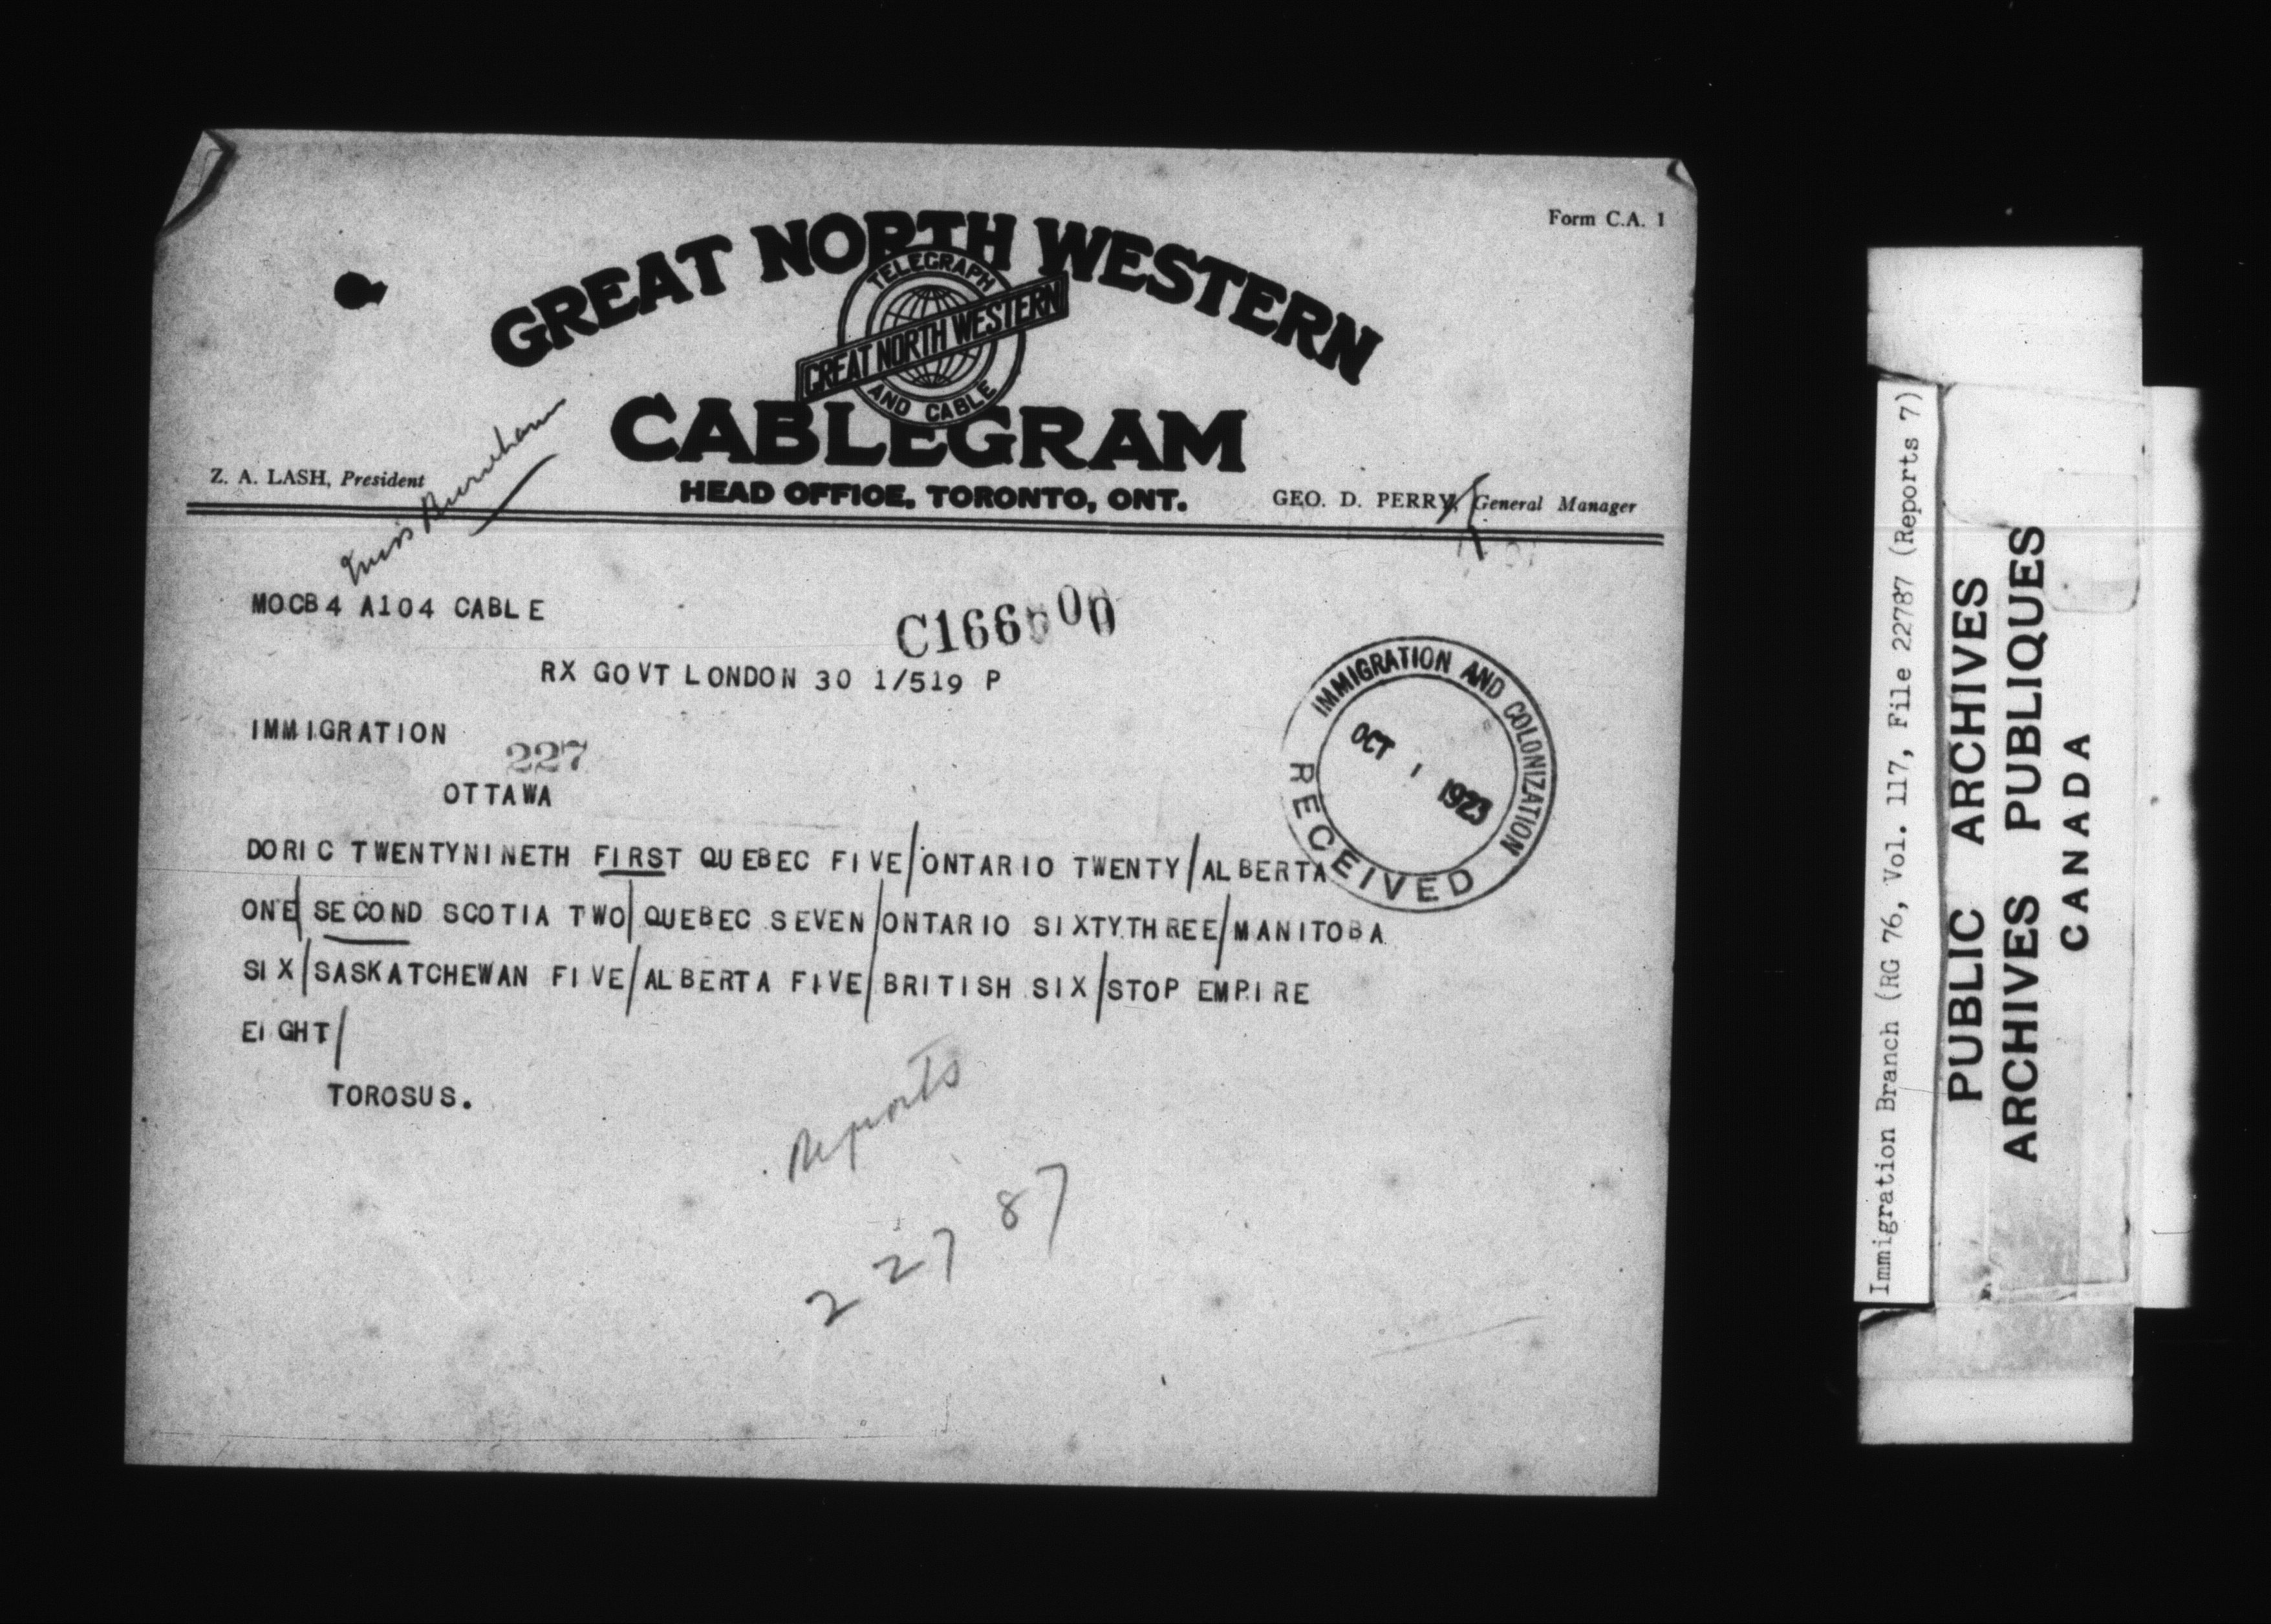 Form C.A. 1
GREAT NORTH WESTERN
TELEGRAPH
GREAT NORTH WESTERN
AND CABLE
CABLEGRAM
Z. A. LASH, President
HEAD OFFICE, TORONTO, ONT.
GEO. D. PERRY, General Manager
Miss Burnham
MOCB4 A104 CABLE
C166
RX GOVT LONDON 30 1/519 P
IMMIGRATION
227
OTTAWA
IMMIGRATION AND COLONIZATION
OCT 1 1923
RECEIVED
DORIC TWENTYNINETH FIRST QUEBEC FIVE/ONTARIO TWENTY/ALBERTA
ONE/SECOND SCOTIA TWO/QUEBEC SEVEN/ONTARIO SIXTYTHREE/MANITOBA
SIX/SASKATCHEWAN FIVE/ALBERTA FIVE/BRITISH SIX/STOP EMPIRE
EIGHT/
TOROSUS.
Reports
22787
Immigration Branch (RG 76, Vol. 117, File 22787 (Reports 7)
PUBLIC ARCHIVES
ARCHIVES PUBLIQUES
CANADA